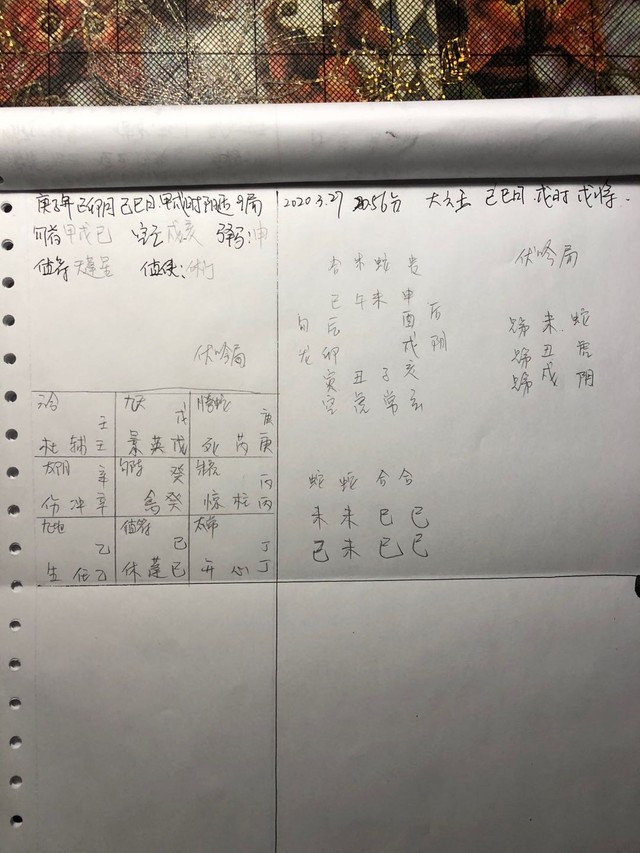 庚子年 己卯月 己巳日 甲戌时 阳遁9局
旬首 甲戌己 空亡 戌亥 驿马:申
值符 天蓬星 值使:休门
伏吟局
六合 九天 螣蛇
壬 戊 庚
杜 辅 壬 景 英 戊 死 芮 庚
太阴 癸
辛 丙
伤 冲 辛 禽 癸 惊 柱 丙
九地 值符 太常
乙 己 丁
生 任 乙 休 蓬 己 开 心 丁
2020.3.27 20.56分 大六壬 己巳日 戌时 戌将
伏吟局
合 朱 蛇 贵
巳 午 未 申
勾 辰 酉 后
龙 卯 戌 阴
寅 丑 子 亥
空 虎 常 玄
兄弟 未 蛇
兄弟 丑 虎
兄弟 戌 阴
蛇 蛇 合 合
未 未 巳 巳
己 未 巳 巳